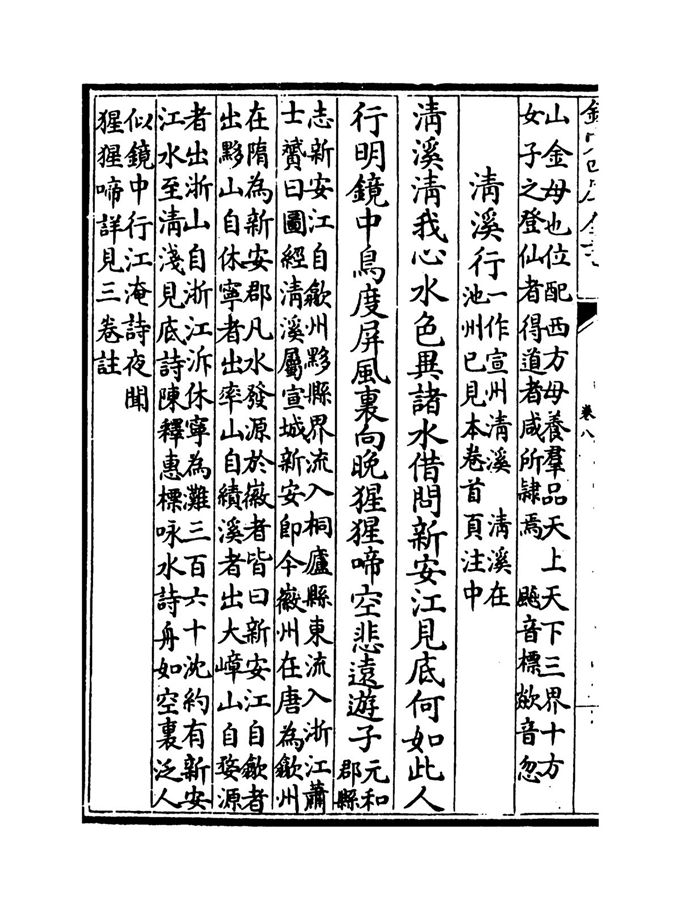 欽定四庫全書
卷八
山金母也位配西方母養羣品天上天下三界十方
女子之登仙者得道者咸所隷焉　飈音標欻音忽
清溪行一作宣州清溪　清溪在
池州已見本卷首頁注中
清溪清我心水色異諸水借問新安江見底何如此人
行明鏡中鳥度屏風裏向晚猩猩啼空悲遠遊子元和
郡縣
志新安江自歙州黟縣界流入桐廬縣東流入浙江蕭
士贇曰圖經清溪屬宣城新安即今徽州在唐為歙州
在隋為新安郡凡水發源於徽者皆曰新安江自歙者
出黟山自休寧者出率山自績溪者出大嶂山自婺源
者出浙山自浙江泝休寧為灘三百六十沈約有新安
江水至清淺見底詩陳釋惠標咏水詩舟如空裏泛人
似鏡中行江淹詩夜聞
猩猩啼詳見三卷註